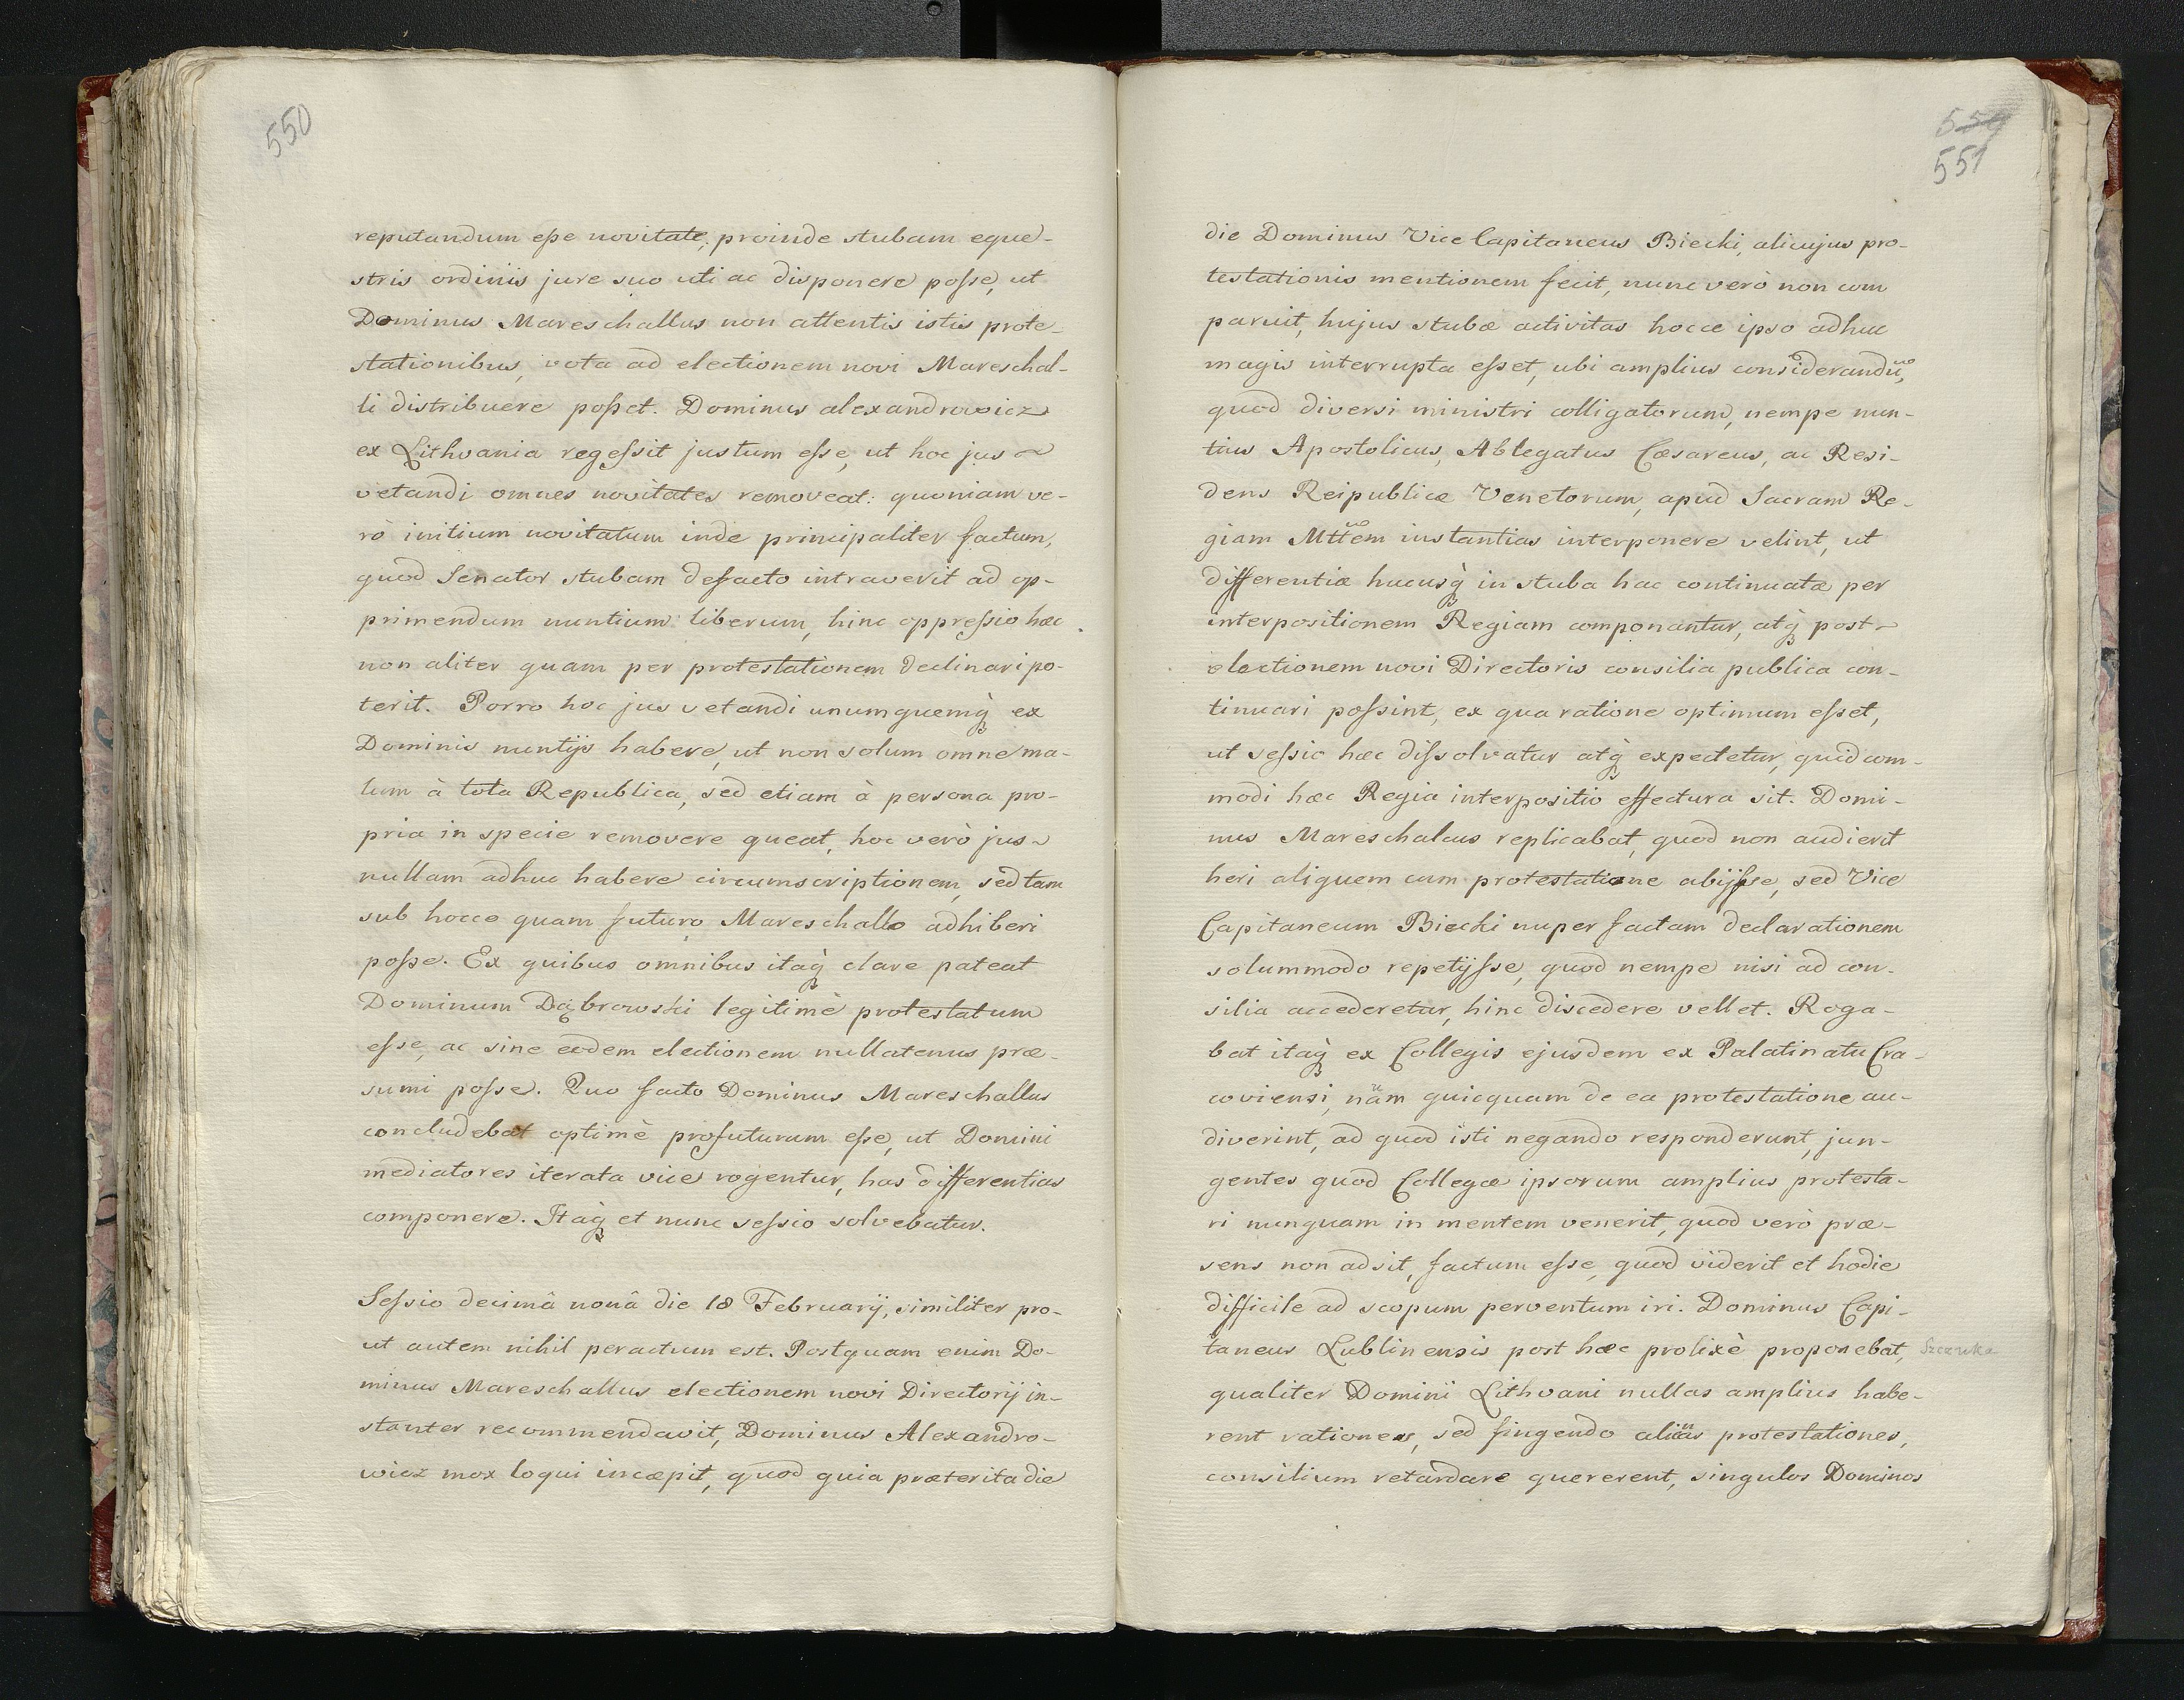 550
reputandum eſse novitate; proinde stubam eque-
stris ordinis jure suo uti ac disponere poſse, ut
Dominus Mareschallus non attentis istis prote-
stationibus, vota ad electionem novi Mareschal-
li distribuere poſset. Dominus alexandrowicz
ex Lithvania regeſsit justum eſse, ut hoc jus
vetandi omnes novitates removeat: quoniam ve-
rò initium novitatum inde principaliter factum,
quod Senator stubam defacto intraverit ad op-
primendum nuntium liberum, hinc oppreſsio hæc
non aliter quam per protestationem declinari po-
terit. Porro hoc jus vetandi unumquemq̀ ex
Dominis nuntijs habere, ut non solum omne ma-
lum à tota Republica, sed etiam à persona pro-
pria in specie removere queat, hoc verò jus
nullam adhuc habere circumscriptionem, sed tam
sub hocce quam futuro Mareschallo adhiberi
poſse. Ex quibus omnibus itaq̀ clare pateat
Dominum Dąbrowski legitimè protestatum
eſse, ac sine eodem electionem nullatenus præ-
sumi poſse. Quo facto Dominus Mareschallus
concludebat optimè profuturum eſse, ut Domini
mediatores iterata vice rogentur, has differentias
componere. Itaq̀ et nunc seſsio solvebatur.
Seſsio decimâ nonâ die 18 Februarij, similiter pro-
ut autem nihil peractum est. Postquam enim Do-
minus Mareschallus electionem novi Directorij in-
stanter recommendavit, Dominus Alexandro-
wicz mox loqui incæpit, quod quia præterita die
551
die Dominus Vice Capitaneus Biecki, alicujus pro-
testationis mentionem fecit, nunc verò non com
paruit, hujus stubæ activitas hocce ipso adhuc
magis interrupta eſset, ubi amplius considerandū,
quod diversi ministri colligatorum, nempe nun-
tius Apostolicus, Ablegatus Cæsareus, ac Resi-
dens Reipublicæ Venetorum, apud Sacram Re-
giam Mttem instantias interponere velint, ut
differentiæ hucusq̀ in stuba hac continuatæ per
interpositionem Regiam componantur, atq̀ post
electionem novi Directoris consilia publica con-
tinuari poſsint, ex qua ratione optimum eſset,
ut seſsio hæc diſsolvatur atq̀ expectetur, quid com-
modi hæc Regia interpositio effectura sit. Domi-
nus Mareschalcus replicabat, quod non audierit
heri aliquem cum protestatione abijſse, sed Vice
Capitaneum Biecki nuper factam declarationem
solummodo repetijſse, quod nempe nisi ad con-
silia accederetur, hinc discedere vellet. Roga-
bat itaq̀ ex Collegis ejusdem ex Palatinatu Cra-
coviensi, num quicquam de ea protestatione au-
diverint, ad quod isti negando responderunt, jun-
gentes quod Collegæ ipsorum amplius protesta-
ri nunquam in mentem venerit, quod verò præ-
sens non adsit, factum eſse, quod viderit et hodie
difficile ad scopum perventum iri. Dominus Capi-
taneus Lublinensis post hæc prolixè proponebat, Szczuka
qualiter Domini Lithvani nullas amplius habe-
rent rationes, sed fingendo alias protestationes,
consilium retardare quererent, singulos Dominos